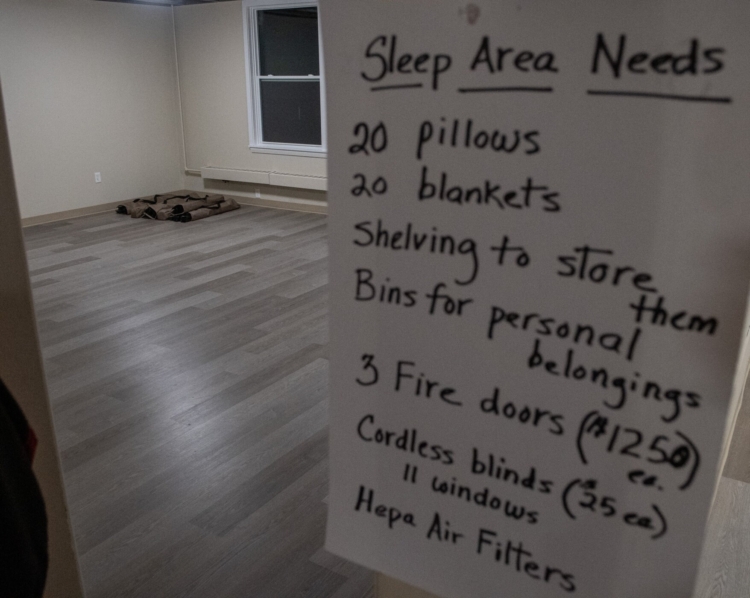 Sleep Area Needs
20 pillows
20 blankets
Shelving to store
them
Bins for personal
belongings
3 Fire doors ($1250)
ea.
Cordless blinds ($25 ea)
11 windows
Hepa Air Filters